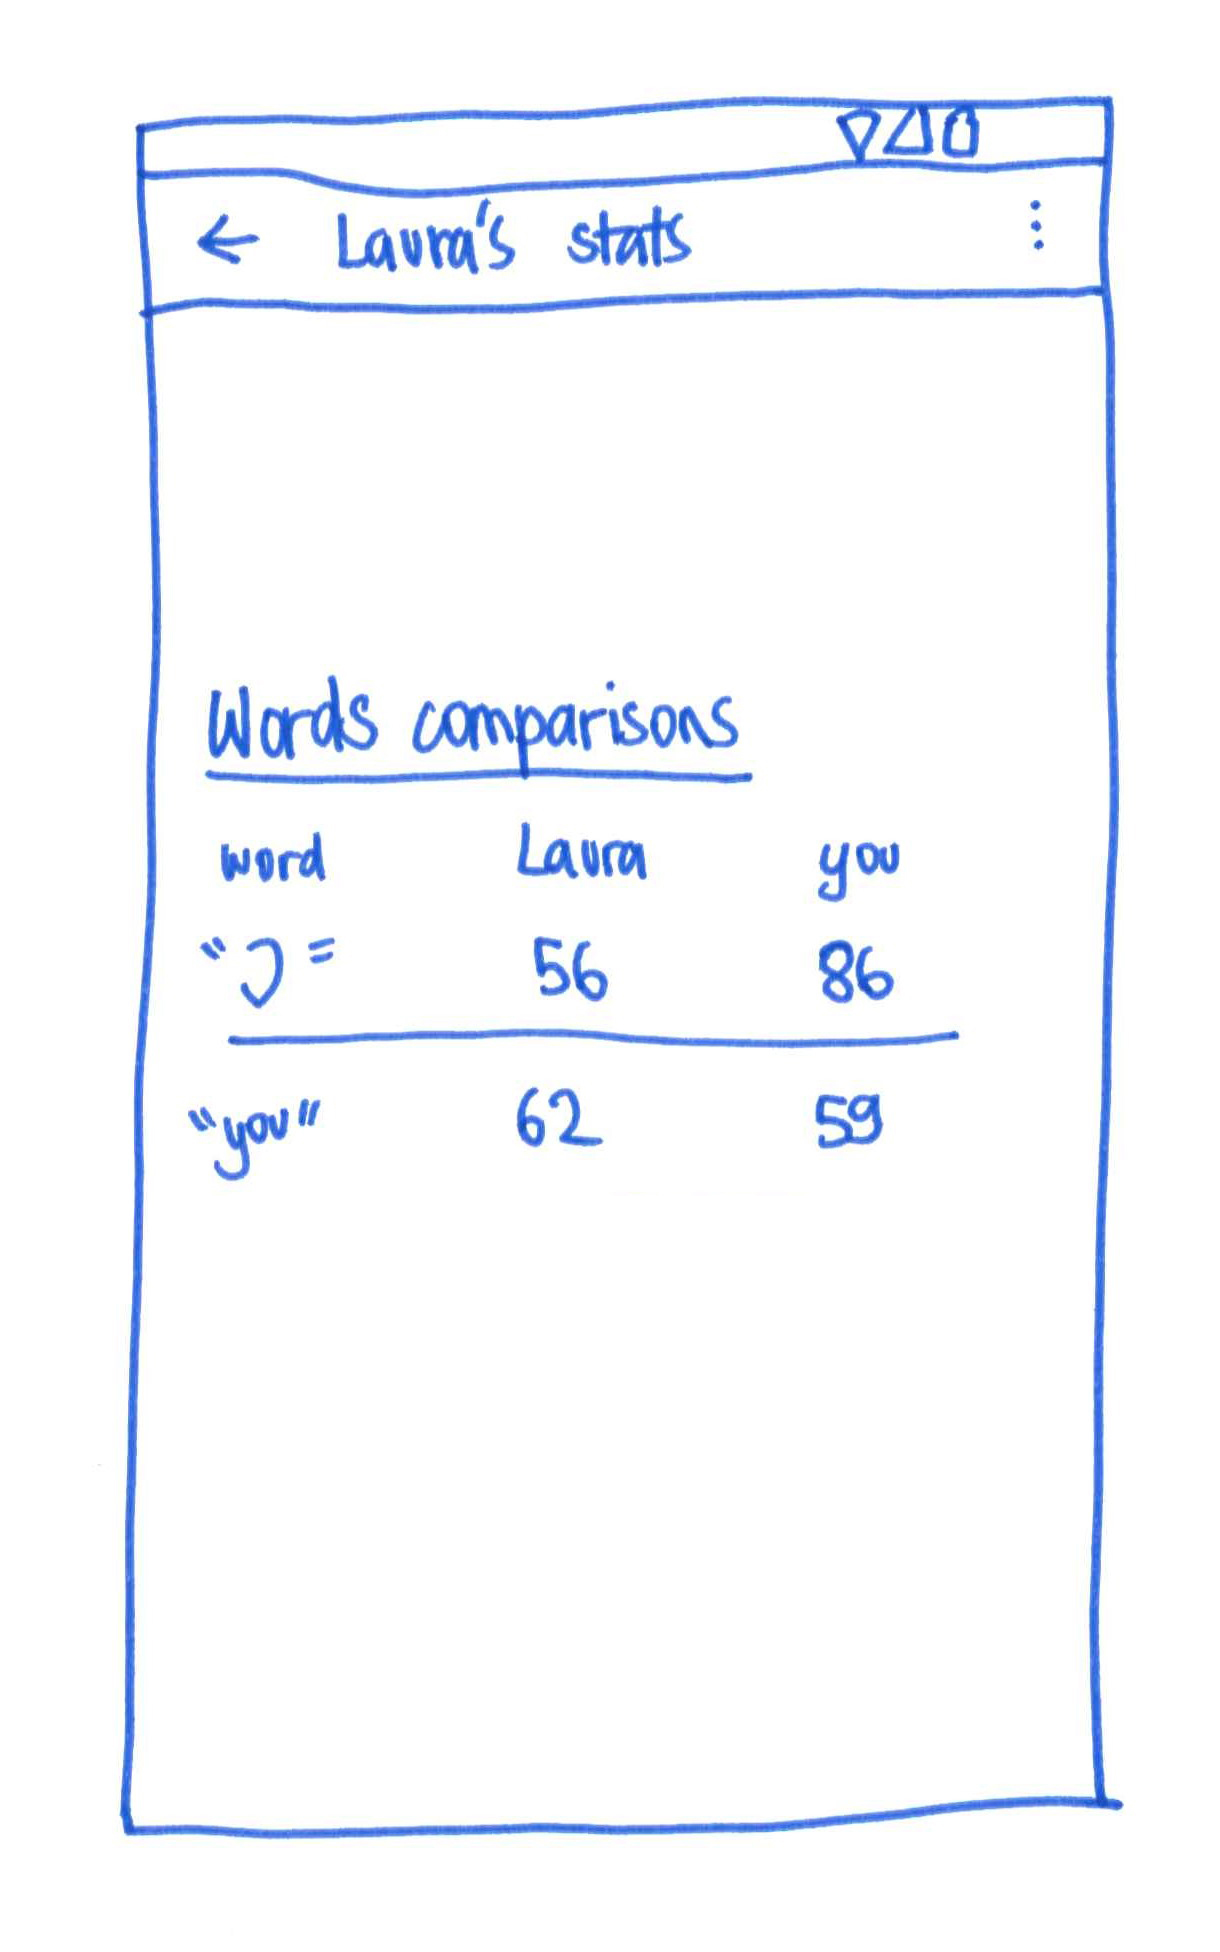 ← Laura's stats ⋮
Words comparisons
word Laura you
56 86
"you" 62 59